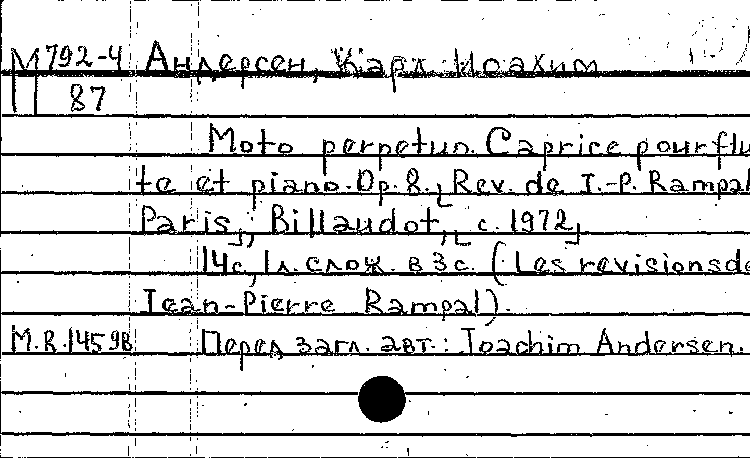 М 792-4 Андерсен, Карл Иоахим
87
Moto perpetuo. Caprice pour flu
te et piano. Op. 8. [Rev. de J.-P. Rampal
Paris], Billaudot, [c. 1972]
14с, 1л. слож. в 3с. (Les revisions de
Jean-Pierre Rampal).
M.R.14598 Перед загл. авт.: Joachim Andersen.